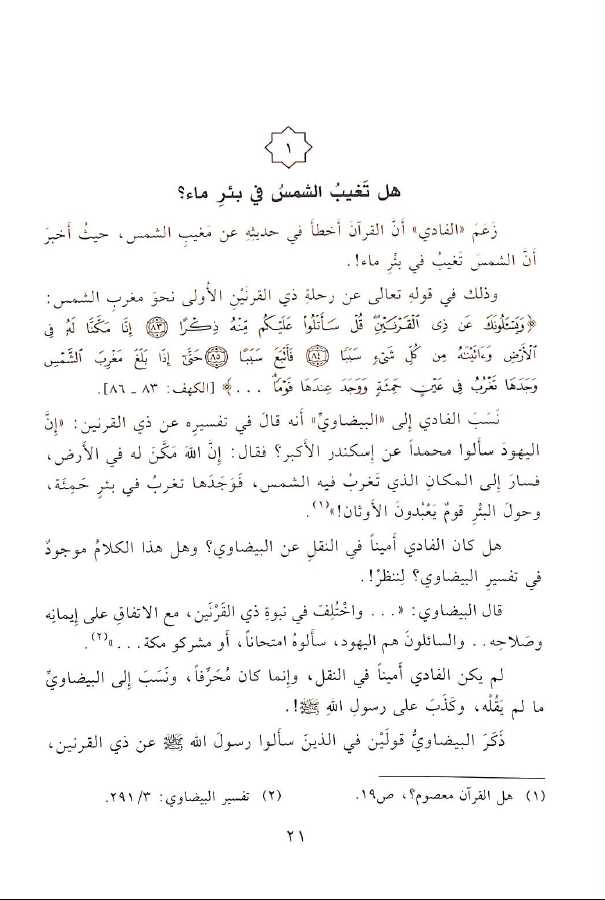 ١
هل تَغيبُ الشمسُ في بئرِ ماء؟
زَعَمَ «الفادي» أنَّ القرآنَ أخطأَ في حديثِهِ عن مَغيبِ الشمس، حيثُ أخبرَ
أنَّ الشمسَ تَغيبُ في بئْرِ ماء!.
وذلك في قولِه تعالى عن رحلةِ ذي القرنَيْنِ الأُولى نحوَ مغربِ الشمس:
﴿وَيَسْـَٔلُونَكَ عَن ذِى ٱلْقَرْنَيْنِ قُلْ سَأَتْلُوا۟ عَلَيْكُم مِّنْهُ ذِكْرًا ﴿٨٣﴾ إِنَّا مَكَّنَّا لَهُۥ فِى
ٱلْأَرْضِ وَءَاتَيْنَـٰهُ مِن كُلِّ شَىْءٍ سَبَبًا ﴿٨٤﴾ فَأَتْبَعَ سَبَبًا ﴿٨٥﴾ حَتَّىٰٓ إِذَا بَلَغَ مَغْرِبَ ٱلشَّمْسِ
وَجَدَهَا تَغْرُبُ فِى عَيْنٍ حَمِئَةٍ وَوَجَدَ عِندَهَا قَوْمًا ...﴾ [الكهف: ٨٣ ـ ٨٦].
نَسَبَ الفادي إلى «البيضاويِّ» أنه قالَ في تفسيرِه عن ذي القرنين: «إِنَّ
اليهودَ سألوا محمداً عن إسكندر الأكبر؟ فقال: إِنَّ اللهَ مَكَّنَ له في الأرض،
فسارَ إلى المكانِ الذي تَغربُ فيه الشمس، فَوَجَدَها تغربُ في بئرِ حَمِئَة،
وحولَ البئْرِ قومٌ يَعْبُدونَ الأَوثان!»(١).
هل كان الفادي أَميناً في النقل عن البيضاوي؟ وهل هذا الكلامُ موجودٌ
في تفسيرِ البيضاوي؟ لِننظرْ!.
قال البيضاوي: «... واخْتُلِفَ في نبوةِ ذي القَرْنَين، مع الاتفاقِ على إِيمانِه
وصَلاحِه.. والسائلونَ هم اليهود، سألوهُ امتحاناً، أَو مشركو مكة...»(٢).
لم يكن الفادي أَميناً في النقل، وإِنما كان مُحَرِّفاً، ونَسَبَ إِلى البيضاويِّ
ما لم يَقُلْه، وكَذَبَ على رسولِ اللهِ ﷺ!.
ذَكَرَ البيضاويُّ قولَيْن في الذينَ سألوا رسولَ الله ﷺ عن ذي القرنين،
(١) هل القرآن معصوم؟، ص١٩. (٢) تفسير البيضاوي: ٣/ ٢٩١.
٢١